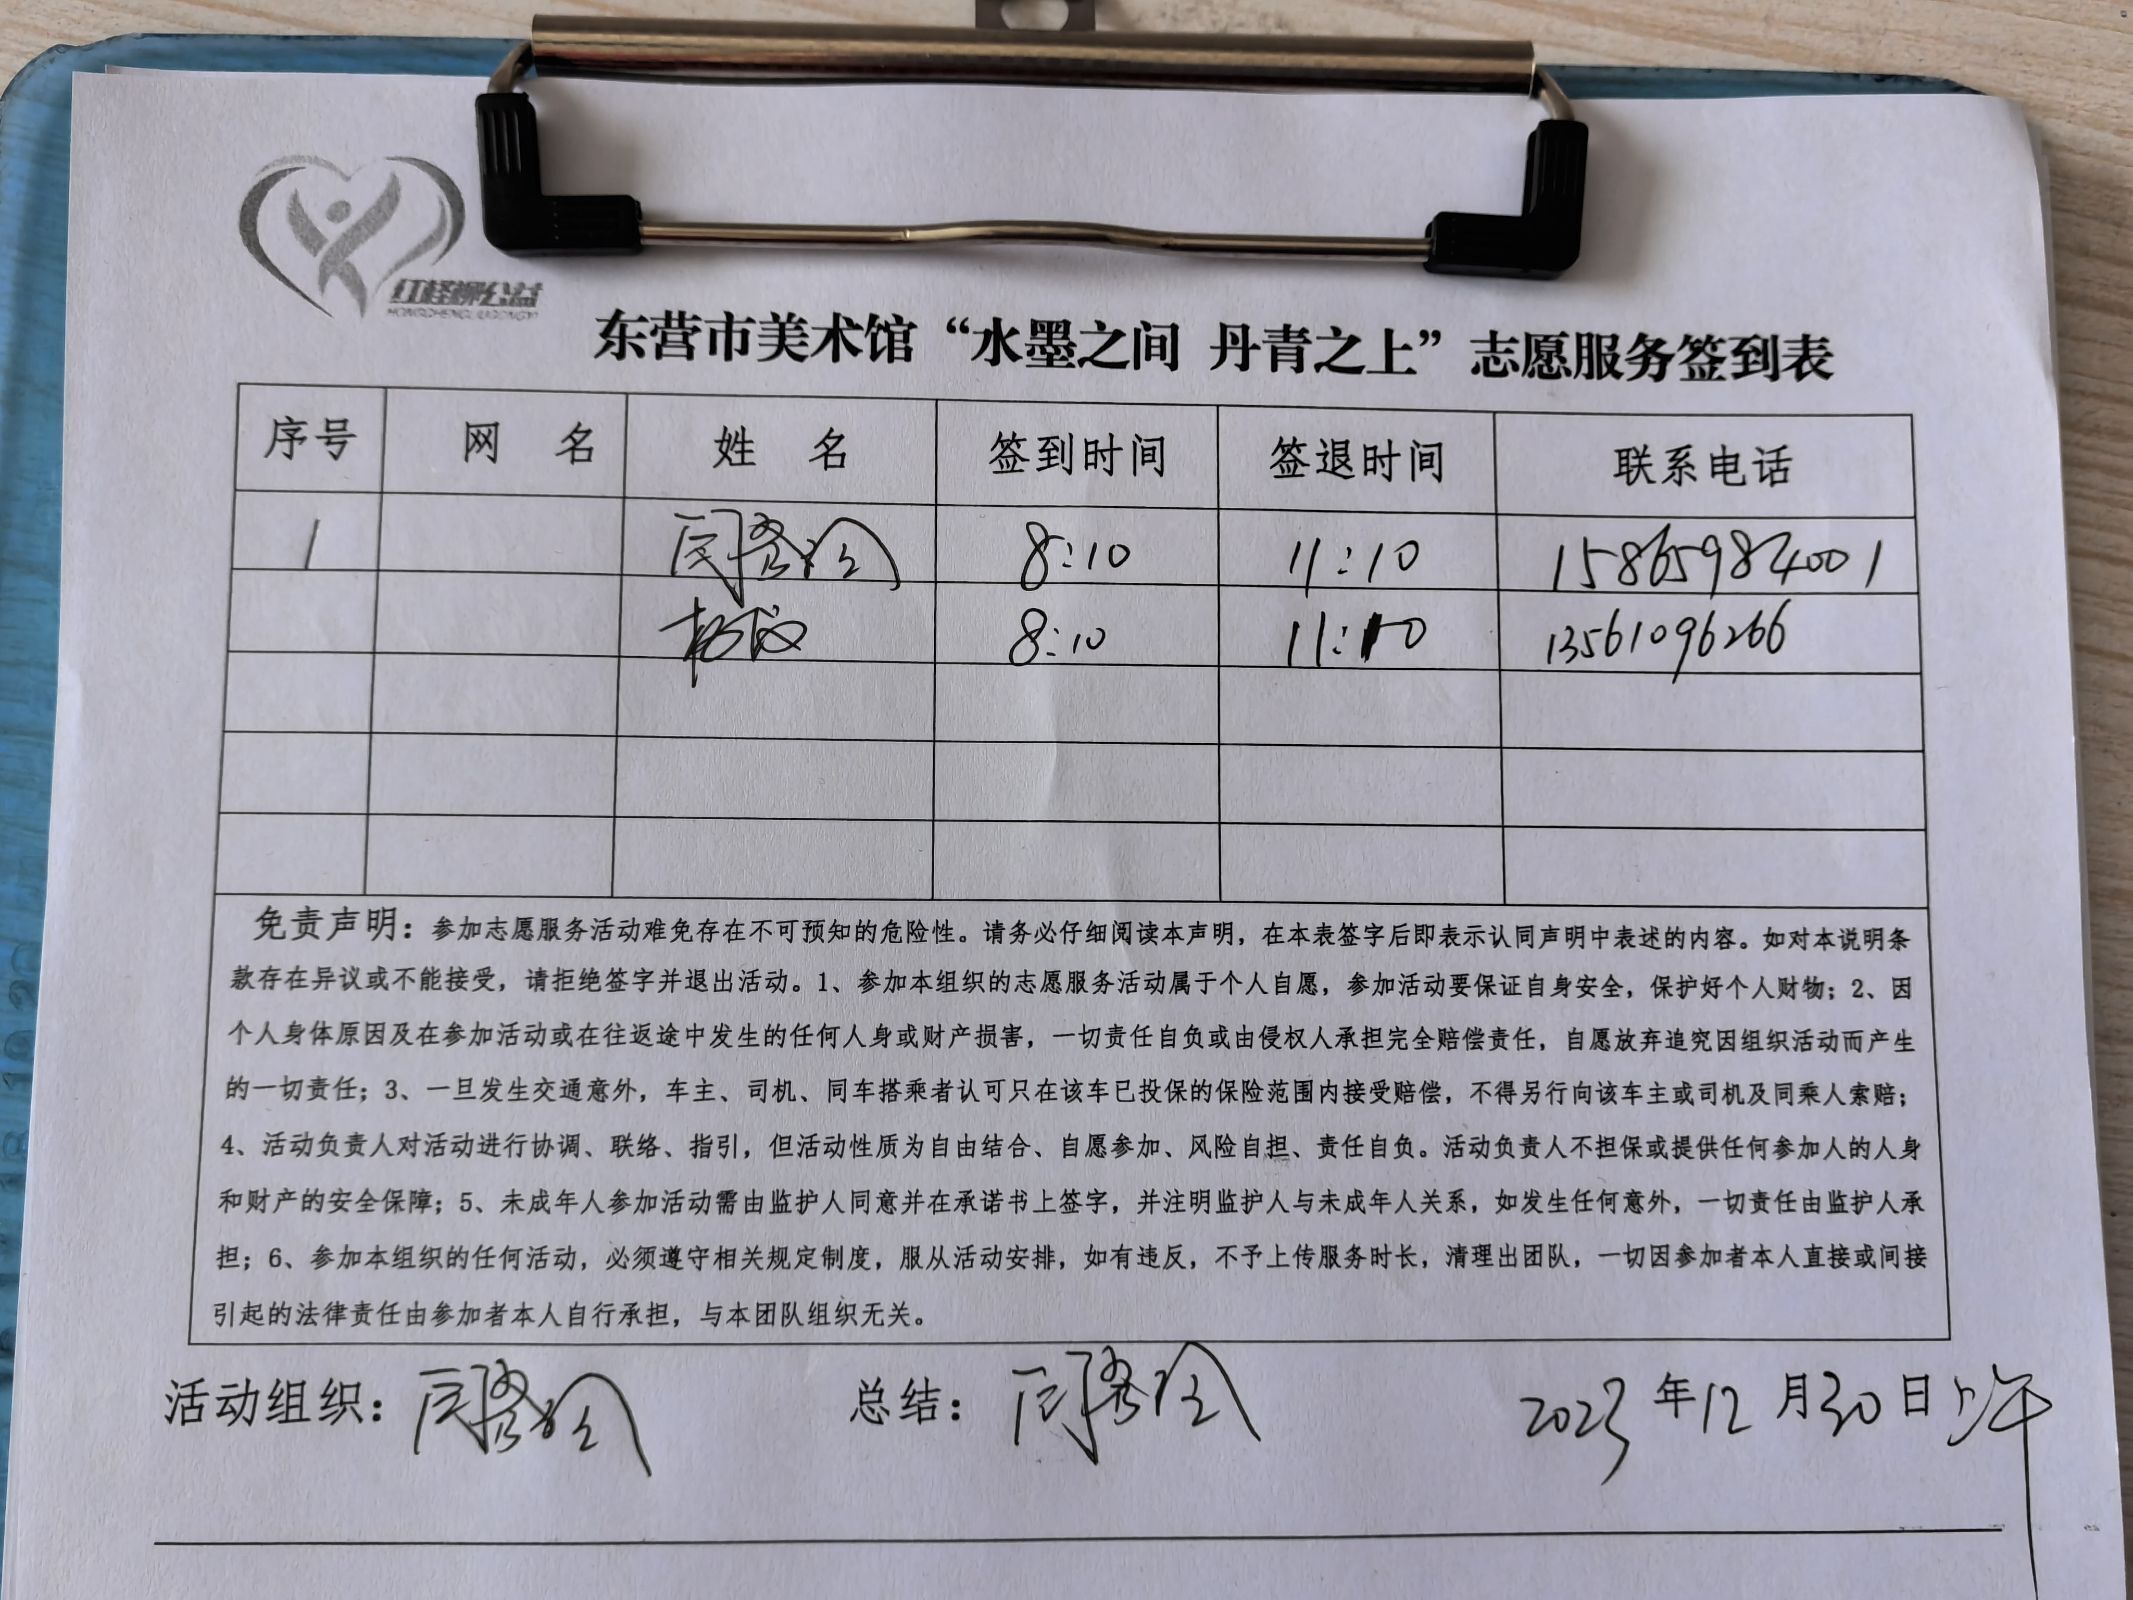 红柽柳公益
东营市美术馆“水墨之间 丹青之上”志愿服务签到表
序号 网 名 姓 名 签到时间 签退时间 联系电话
1 8:10 11:10 15865984001
8:10 11:10 13561096266
免责声明：参加志愿服务活动难免存在不可预知的危险性。请务必仔细阅读本声明，在本表签字后即表示认同声明中表述的内容。如对本说明条
款存在异议或不能接受，请拒绝签字并退出活动。1、参加本组织的志愿服务活动属于个人自愿，参加活动要保证自身安全，保护好个人财物；2、因
个人身体原因及在参加活动或在往返途中发生的任何人身或财产损害，一切责任自负或由侵权人承担完全赔偿责任，自愿放弃追究因组织活动而产生
的一切责任；3、一旦发生交通意外，车主、司机、同车搭乘者认可只在该车已投保的保险范围内接受赔偿，不得另行向该车主或司机及同乘人索赔；
4、活动负责人对活动进行协调、联络、指引，但活动性质为自由结合、自愿参加、风险自担、责任自负。活动负责人不担保或提供任何参加人的人身
和财产的安全保障；5、未成年人参加活动需由监护人同意并在承诺书上签字，并注明监护人与未成年人关系，如发生任何意外，一切责任由监护人承
担；6、参加本组织的任何活动，必须遵守相关规定制度，服从活动安排，如有违反，不予上传服务时长，清理出团队，一切因参加者本人直接或间接
引起的法律责任由参加者本人自行承担，与本团队组织无关。
活动组织： 总结： 2023年12月30日上午